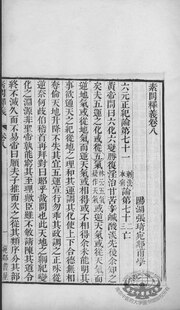 素問釋義卷八
陽湖張琦翰風
六元正紀論第七十一 刺法論第七十二 本病論第七十三
黃帝問曰六化六變勝復淫治甘苦辛鹹酸淡先後余知之
矣夫五運之化或從五氣或逆天氣或從天氣而逆
地氣或從地氣而逆天氣或相得或不相得余未能明其
事欲通天之紀從地之理和其運調其化使上下合德無相
奪倫天地升降不失其宜五運宣行勿乖其政調之正味從
逆奈何岐伯稽首再拜對曰昭乎哉問也此天地之綱紀變
化之淵源非聖帝孰能窮其至理歟臣雖不敏請陳其道令
終不滅久而不易帝曰願夫子推而次之從其類序分其部